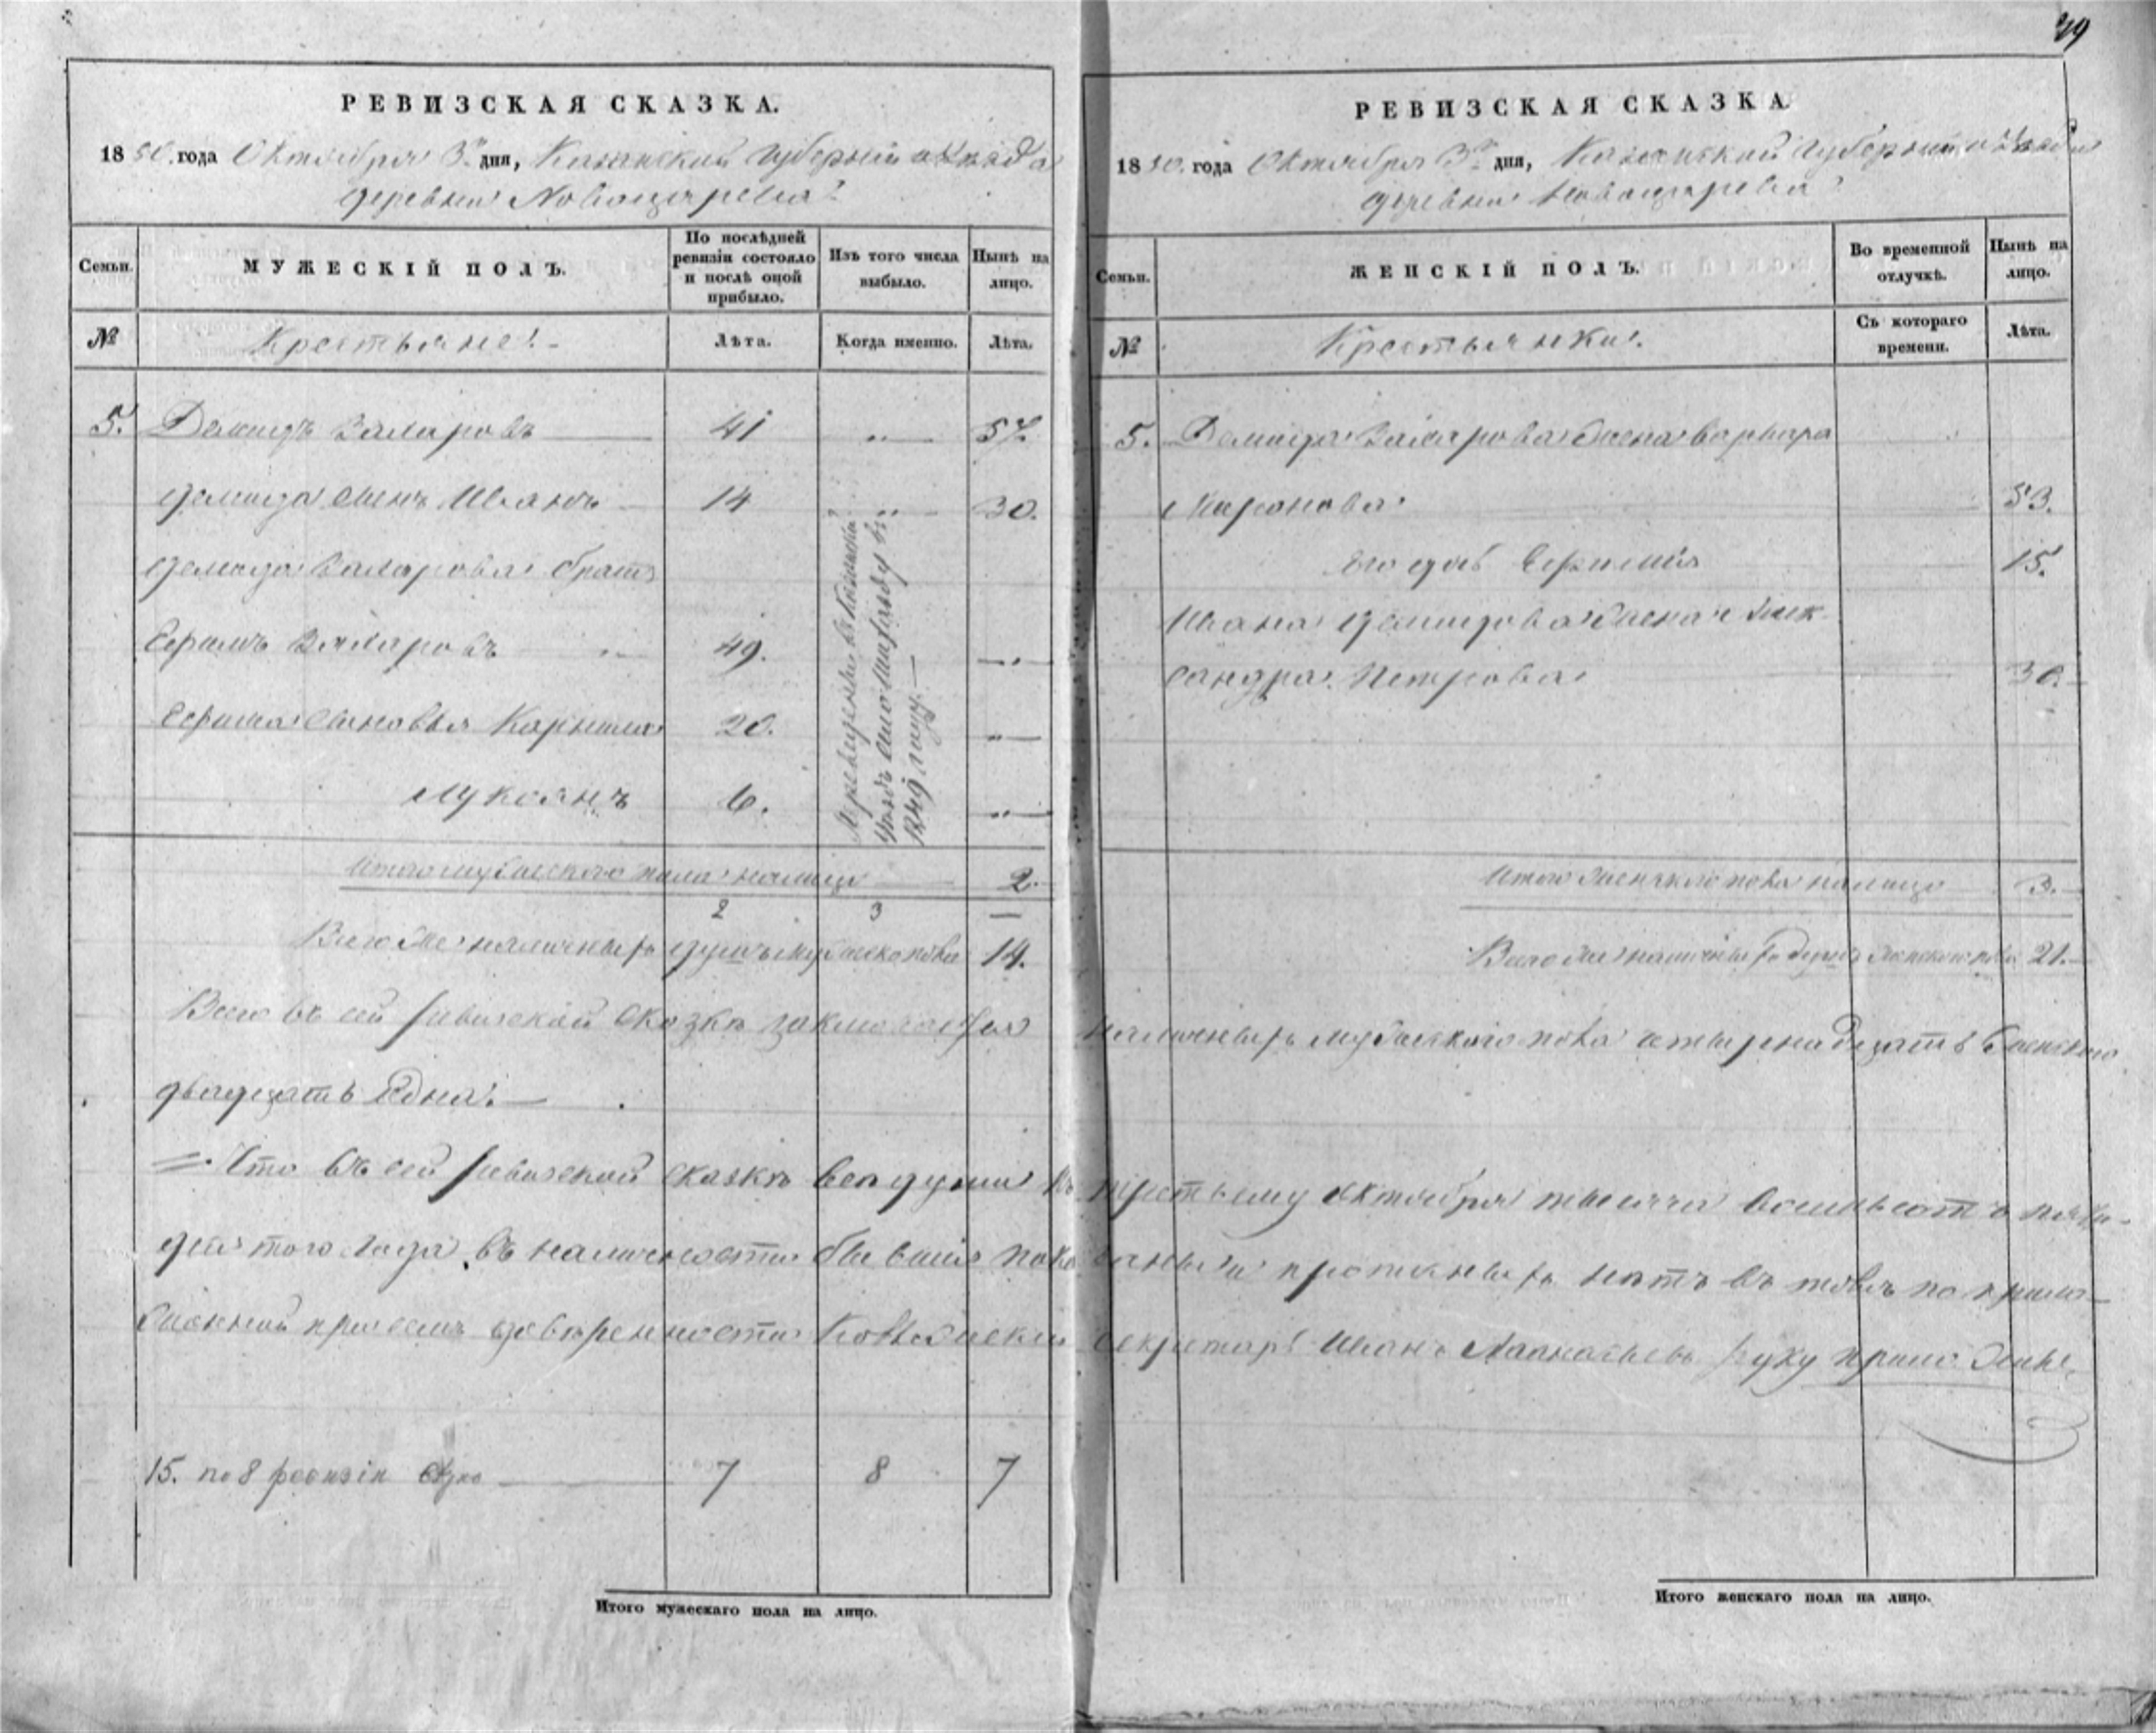 39
РЕВИЗСКАЯ СКАЗКА.
1850. года Октября 3го дня, Казанской губернии и уезда
деревни Новоцарева
Семьи.
МУЖЕСКІЙ ПОЛЪ.
По послѣдней ревизіи состояло и послѣ оной прибыло.
Изъ того числа выбыло.
Нынѣ на лицо.
№
Крестьяне:
Лѣта.
Когда именно.
Лѣта.
5. Демидъ Захаровъ 41 „ 57.
Демида сынъ Иванъ 14 „ 30.
Демида Захарова братъ
Ефимъ Захаровъ 49. „
Ефима сыновья 20. „
Лукоянъ 6. „
1849 году.
Итого мужескаго пола налицо 2.
2 3 —
Всего же наличныхъ душъ мужеско пола 14.
Всего въ сей ревизской сказкѣ заключается
двадцать одна.
Что въ сей ревизской сказкѣ всѣ души къ
того года въ наличности бывшія пока
15. по 8 ревизіи 7 8 7
Итого мужескаго пола на лицо.
РЕВИЗСКАЯ СКАЗКА.
1850. года Октября 3го дня, Казанской Губернии и Уезда
деревни Новоцарева
Семьи.
ЖЕНСКІЙ ПОЛЪ.
Во временной отлучкѣ.
Нынѣ на лицо.
№
Крестьянки:
Съ котораго времени.
Лѣта.
5. Демида Захарова жена Варвара
Миронова 53.
его дочь 15.
Ивана Демидова жена Алек-
сандра Петрова 30.
Итого женскаго пола налицо 3.
Всего же наличныхъ душъ женского пола 21.
наличныхъ мужескаго пола четырнадцать женскаго
третьему октября тысяча восемьсотъ пяти-
заны и прописныхъ нѣтъ въ томъ по
секретарь Иванъ Афанасьевъ руку приложилъ
Итого женскаго пола на лицо.